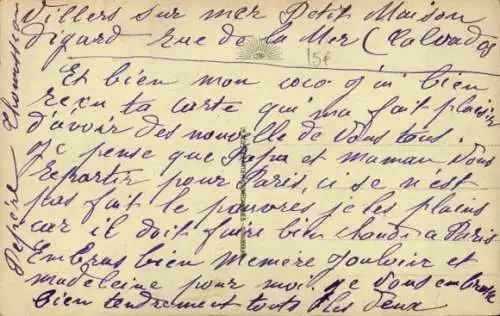 Villers sur mer Petit Maison
Digard rue de la Mer (Calvados
15€
Et bien mon coco j'ai bien
reçu ta carte qui ma fait plaisir
d'avoir des nouvelle de vous tous.
Je pense que Papa et maman vous
repartir pour Paris, ci se n'est
pas fait le pauvres je les plains
car il doit faire bien chaud a Paris
Embras bien memere et
madeleine pour moi. je vous embrasse
bien tendrement touts les deux
Pepere